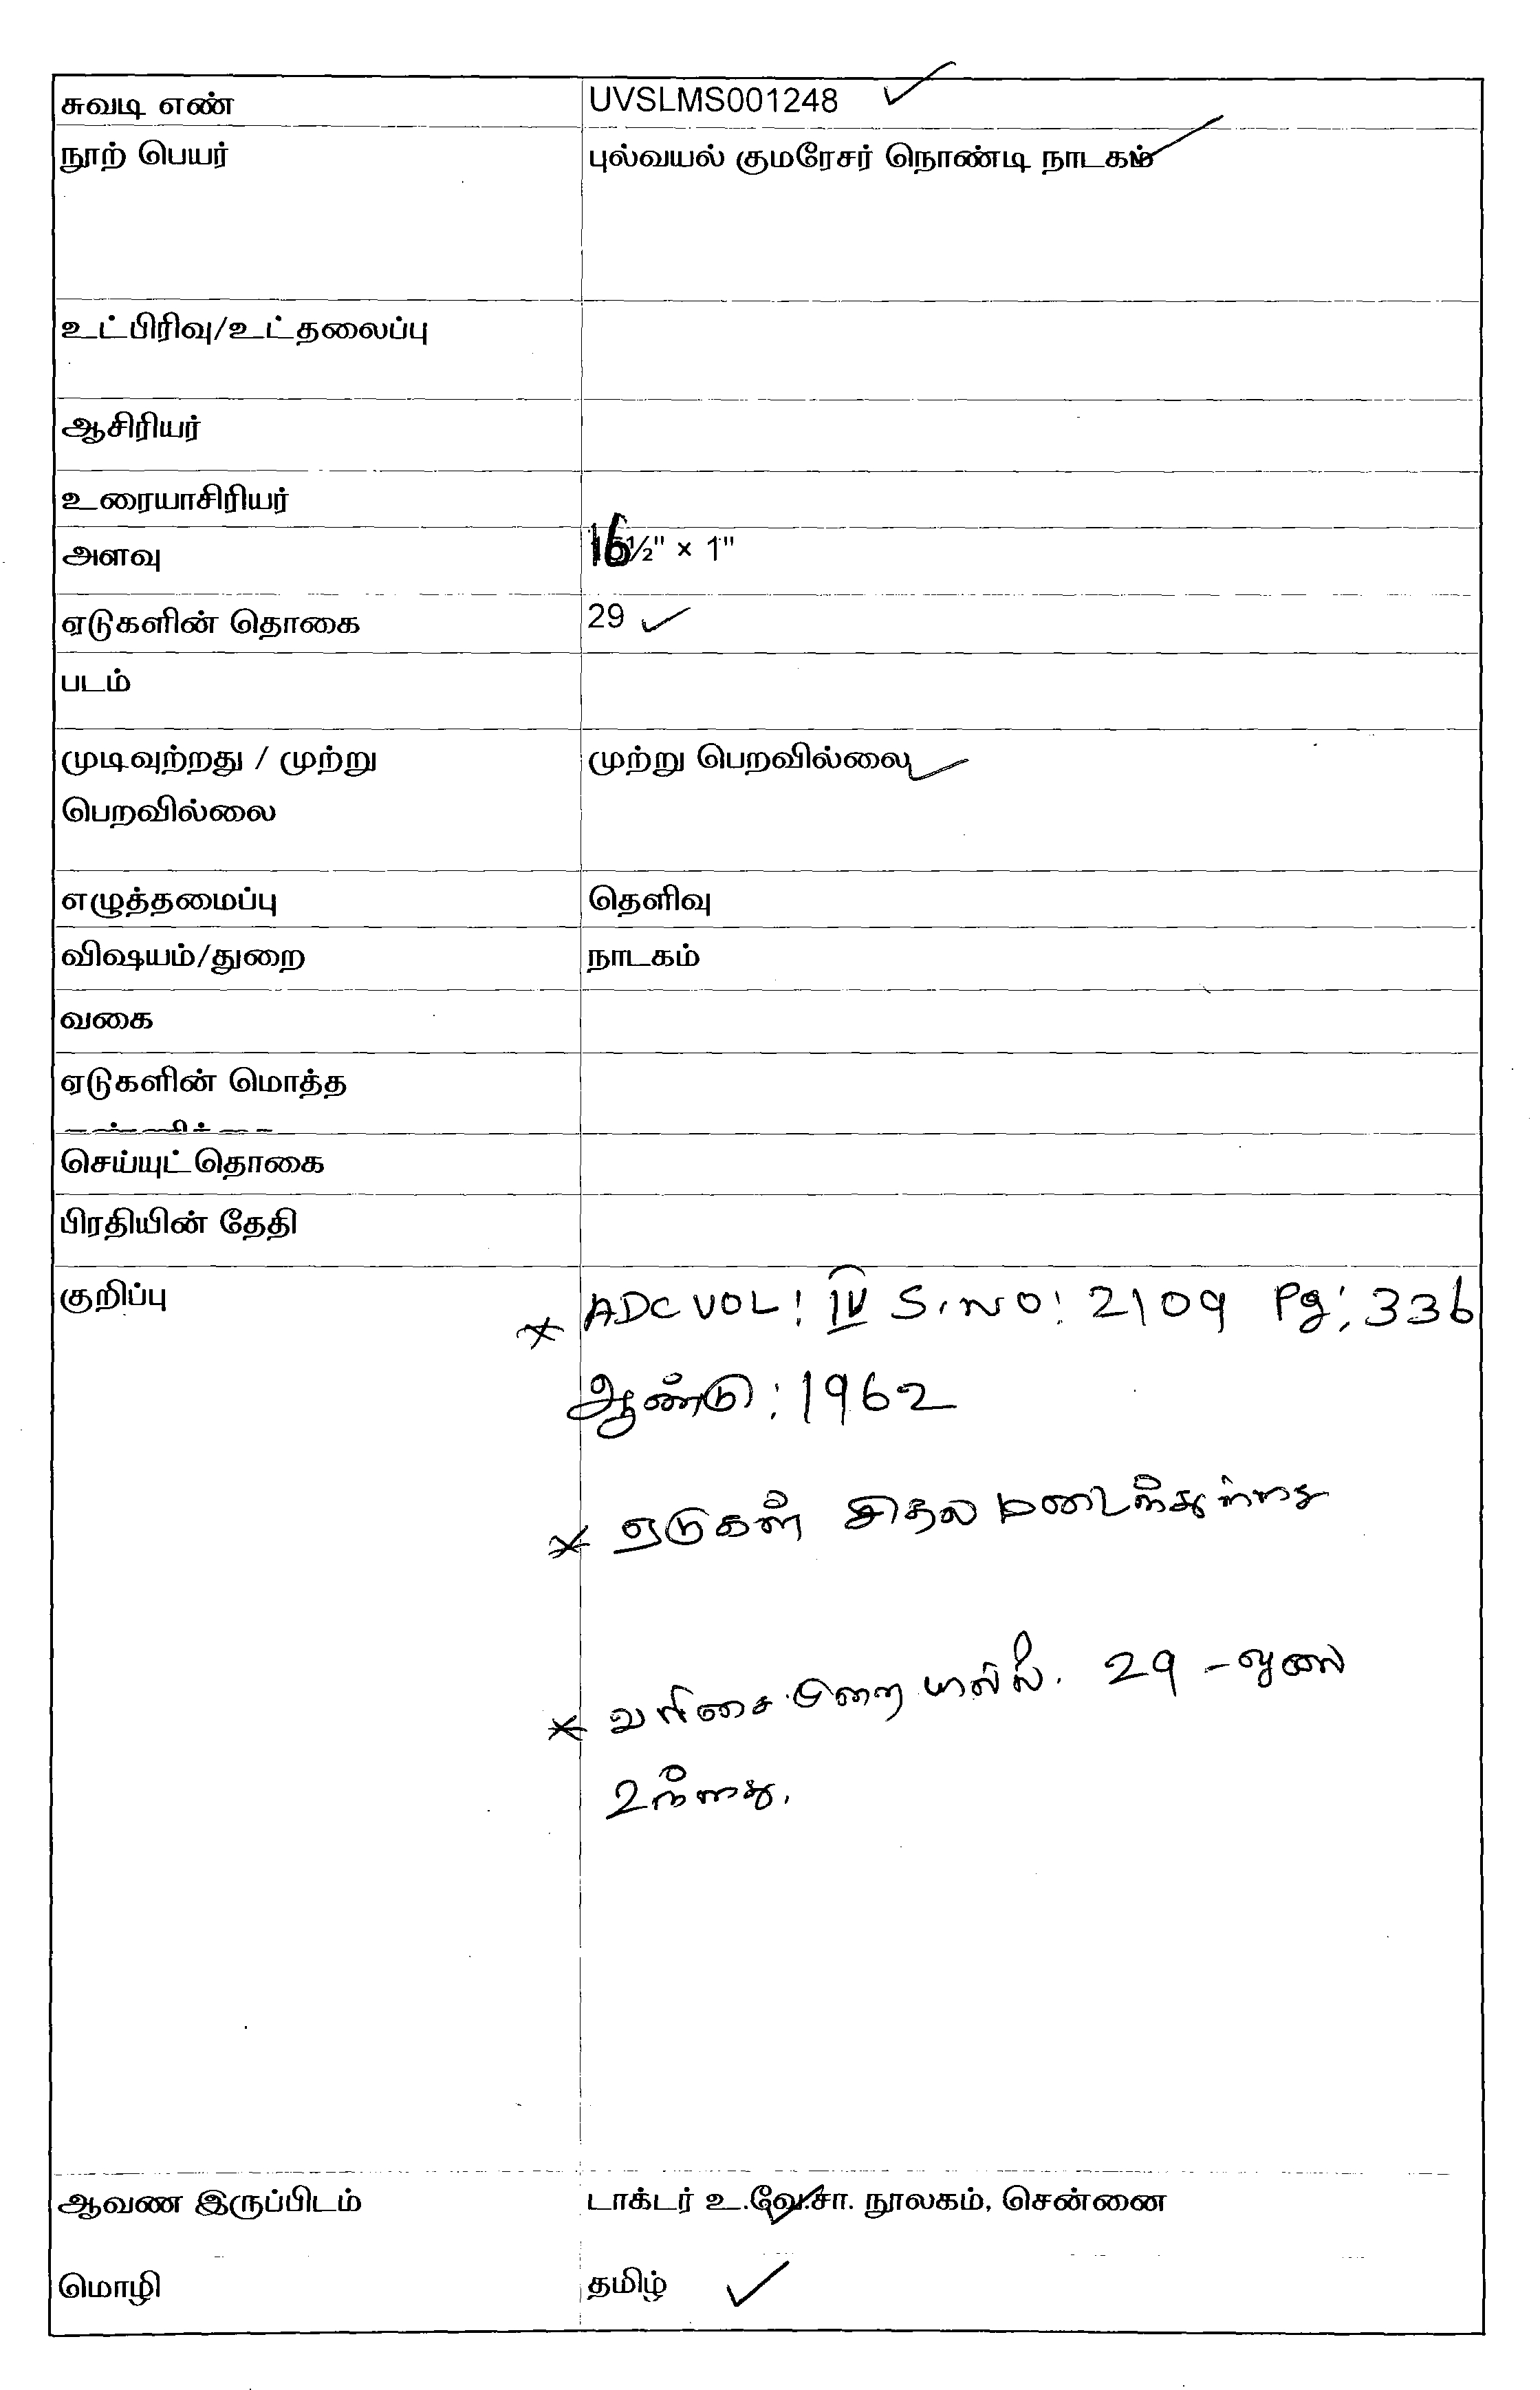 சுவடி எண் UVSLMS001248
நூற் பெயர் புல்வயல் குமரேசர் நொண்டி நாடகம்
உட்பிரிவு/உட்தலைப்பு
ஆசிரியர்
உரையாசிரியர்
அளவு 16½" × 1"
ஏடுகளின் தொகை 29
படம்
முடிவுற்றது / முற்று முற்று பெறவில்லை
பெறவில்லை
எழுத்தமைப்பு தெளிவு
விஷயம்/துறை நாடகம்
வகை
ஏடுகளின் மொத்த
செய்யுட்தொகை
பிரதியின் தேதி
குறிப்பு * ADC VOL: IV S.NO: 2109 Pg: 336
ஆண்டு: 1962
* ஏடுகள் சிதலமடைந்துள்ளது
* வரிசை முறையில். 29 -
உள்ளது.
ஆவண இருப்பிடம் டாக்டர் உ.வே.சா. நூலகம், சென்னை
மொழி தமிழ்